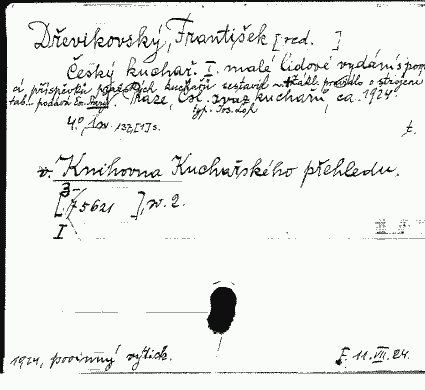 Dřevikovský, František [red. ]
Český kuchař. I. malé lidové vydání s pom
cí příspěvků pražských kuchařů sestavil
tab. podává Praze, Čsl. svaz kuchařů, ca. 1924
typ.
4.° 132,[1] s.
t.
v. Knihovna Kuchařského přehledu.
[75621 ], v. 2.
I
1924, povinný výtisk.
F. 11. VII. 24.